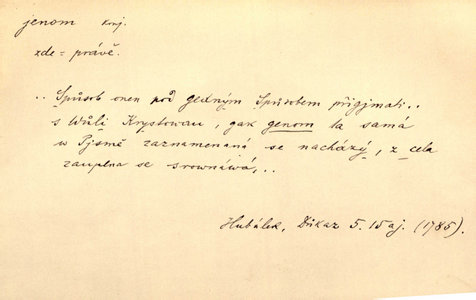 jenom konj.
zde = právě.
.. Spůsob onen pod gedným Spůsobem přigjmati..
s Wůli Krystowau, gak genom ta samá
w Pjsmě zaznamenaná se nacházý, z cela
zauplna se srownáwá,..
Hubálek, Důkaz 5. 15 aj. (1785).